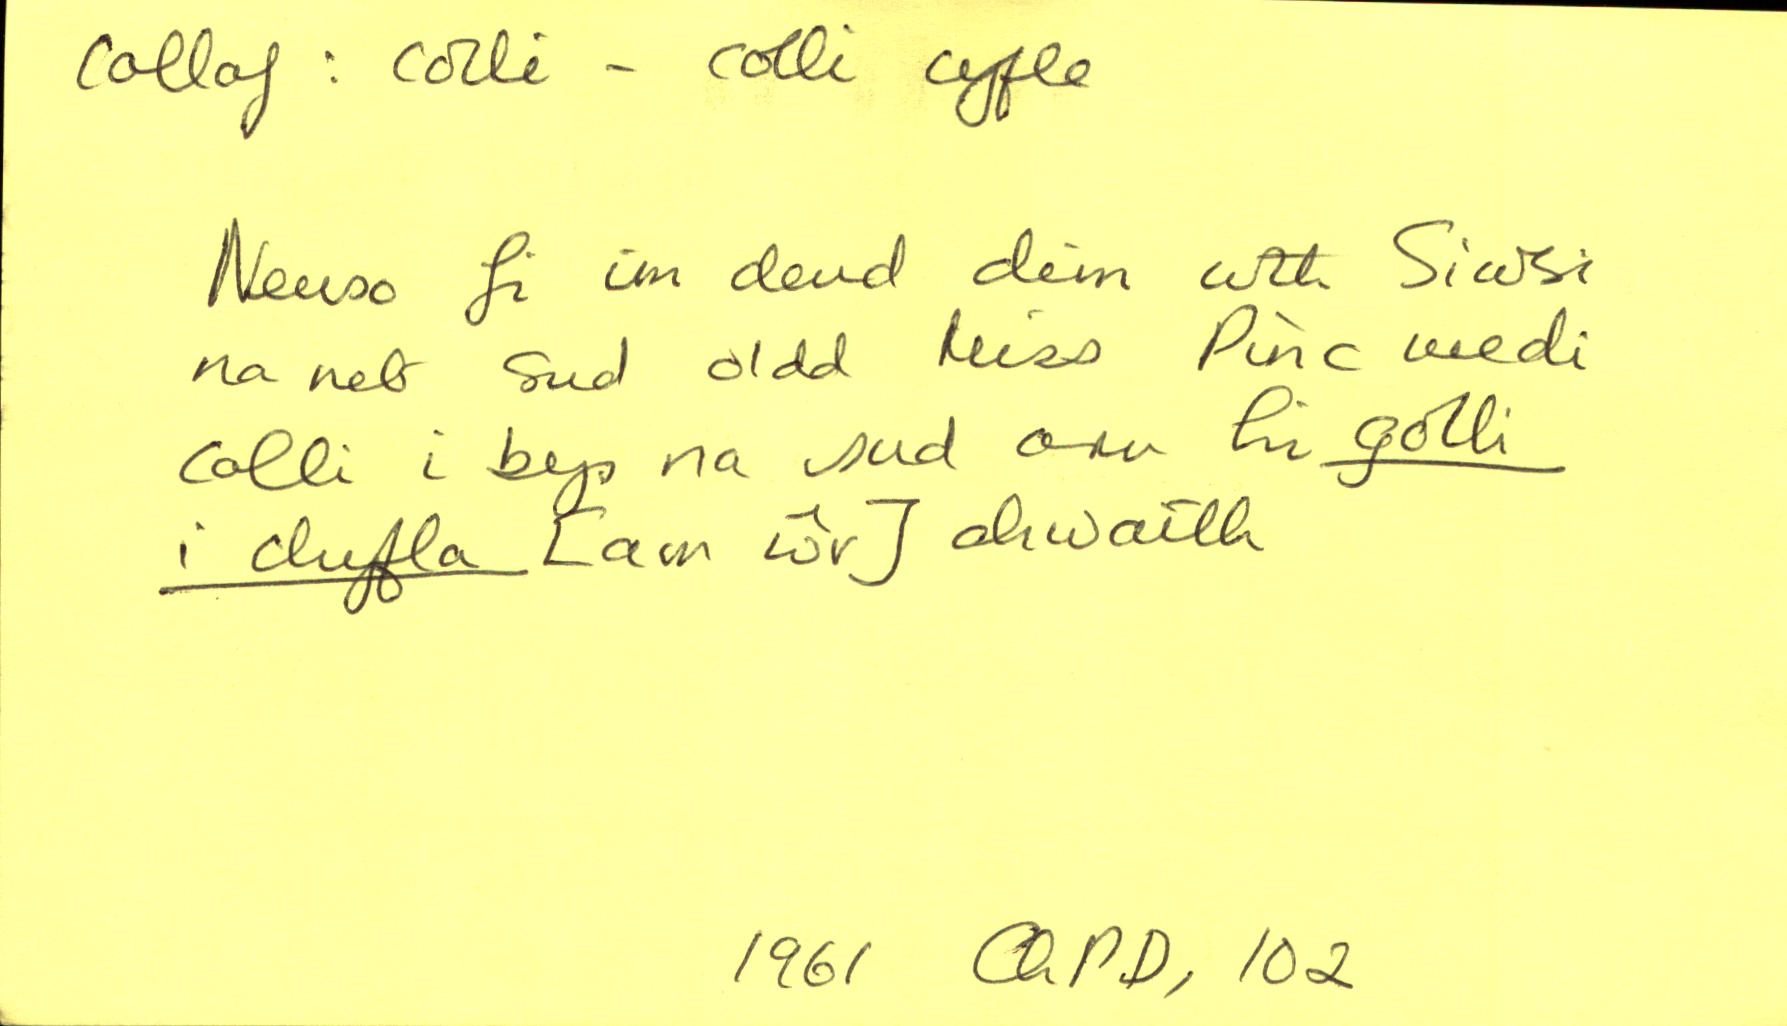 collaf : colli - colli cyfle
Neuso fi im deud dim wth Siwsi
na neb sud oldd Miss Pinc wedi
colli i bys na sud aru hi golli
i chyfla [am ŵr] chwaith
1961 ChPD, 102